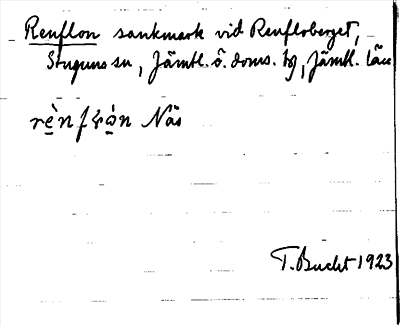 Renflon sankmark vid Renfloberget,
Stuguns sn, Jämtl. ö. doms. hg, Jämtl. län
Näs
T. Bucht 1923